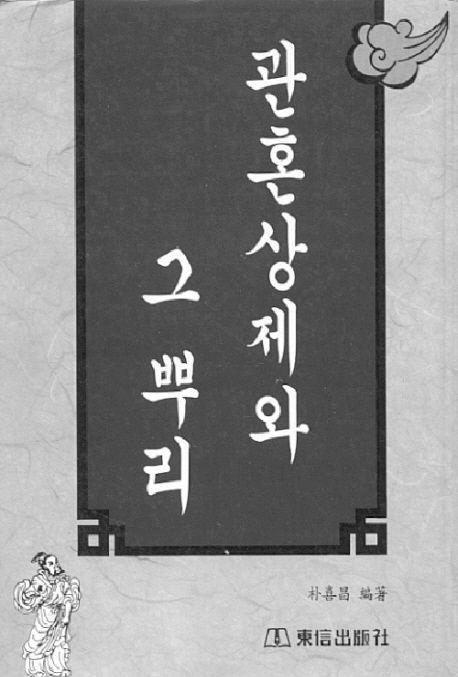 관혼상제와
그 뿌리
朴喜昌 編著
東信出版社